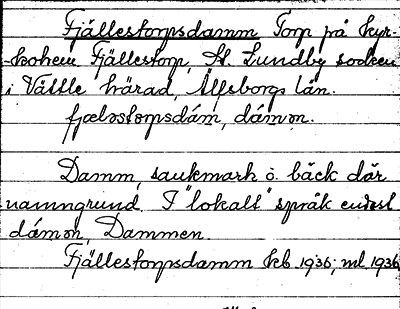 Fjällestorpsdamm Torp på kyr-
-kohem. Fjällestorp, St. Lundby socken
i Vättle härad, Älfsborgs län.
fjæləstorpsdám, dámən.
Damm, sankmark o. bäck där
namngrund. I "lokalt" språk endast
dámən, Dammen.
Fjällestorpsdamm kb. 1936; ml. 1936